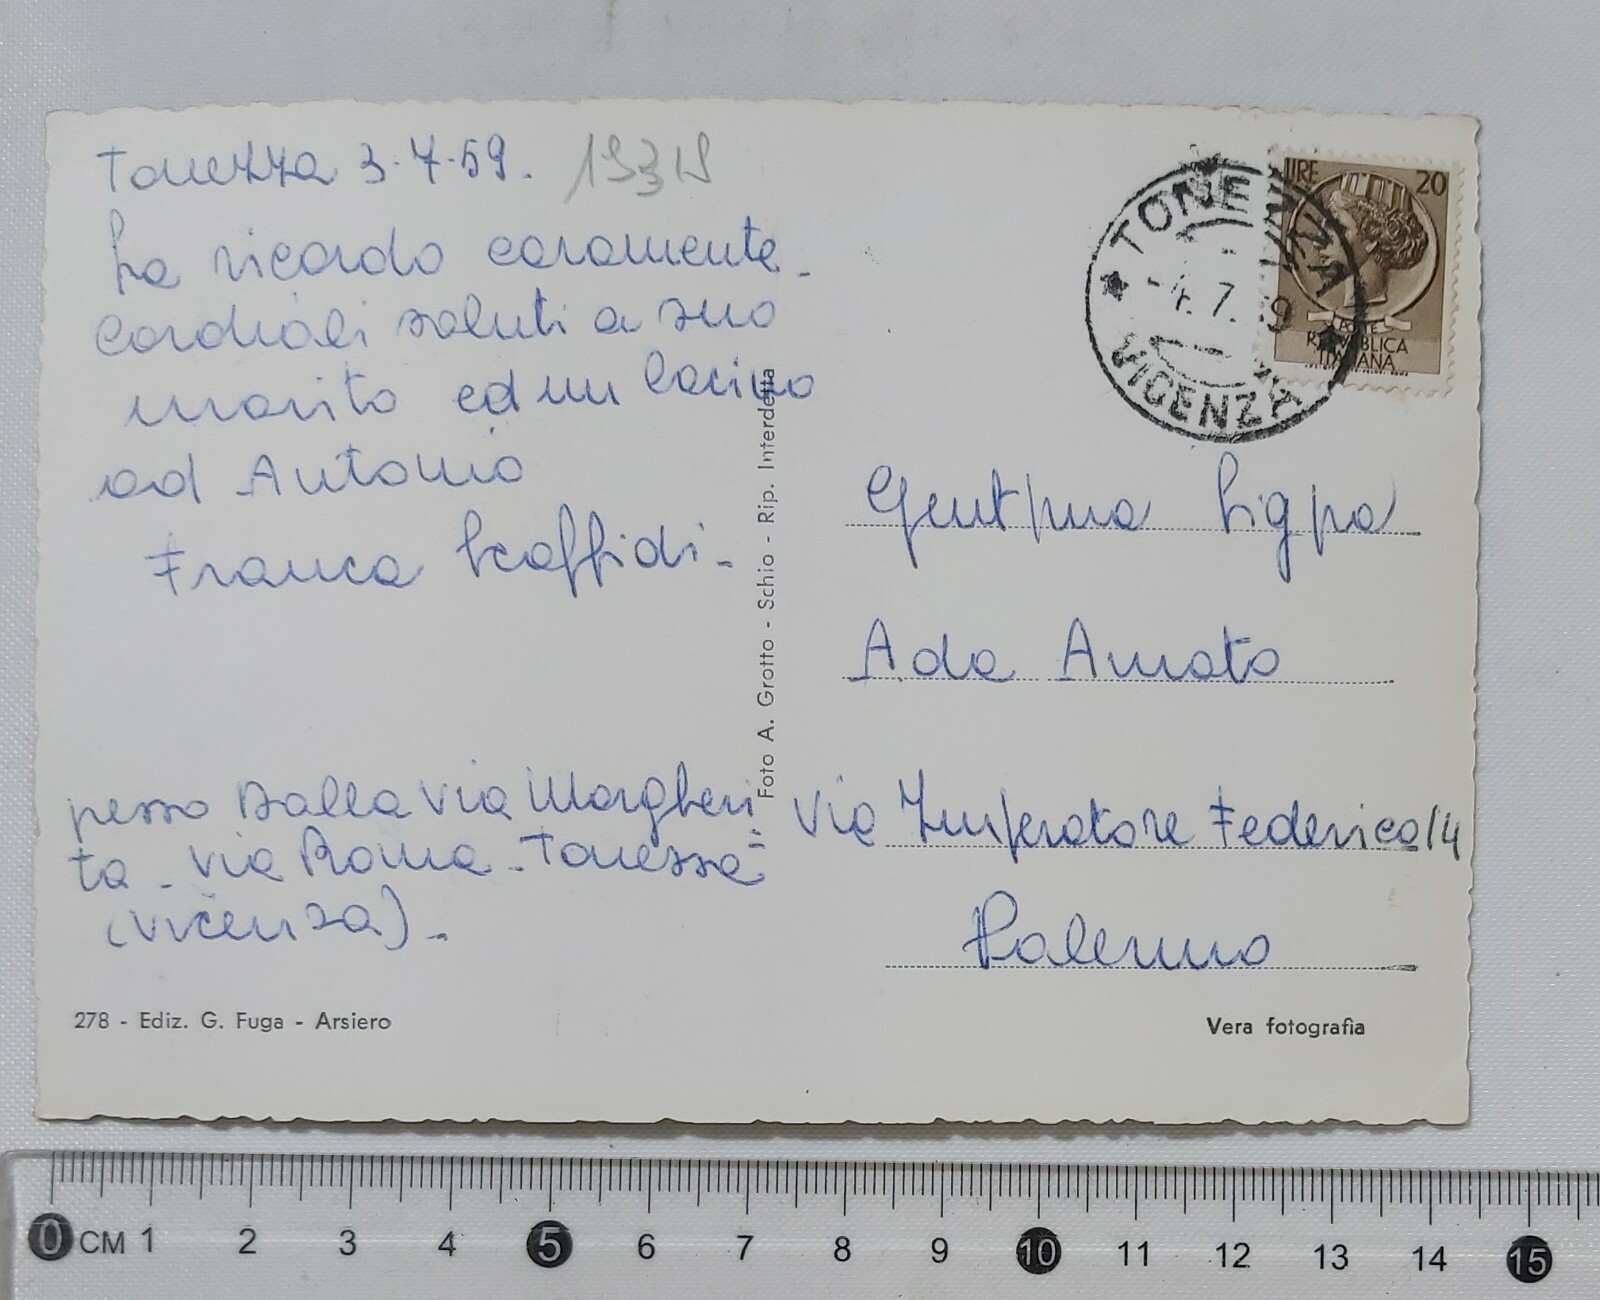 Tonezza 3-7-59.
19319
La ricordo caramente.
Cordiali saluti a suo
marito ed un bacino
ad Antonio
Franca Scaffidi.
presso Dalla Via Margheri
ta - Via Roma - Tonessa
(Vicenza).
278 - Ediz. G. Fuga - Arsiero
Foto A. Grotto - Schio - Rip. Interdetta
TONEZZA
4.7. 9
VICENZA
LIRE 20
REPUBBLICA
ITALIANA
Gent/ma Sig/ra
Ada Amato
Via Imperatore Federico 14
Palermo
Vera fotografia